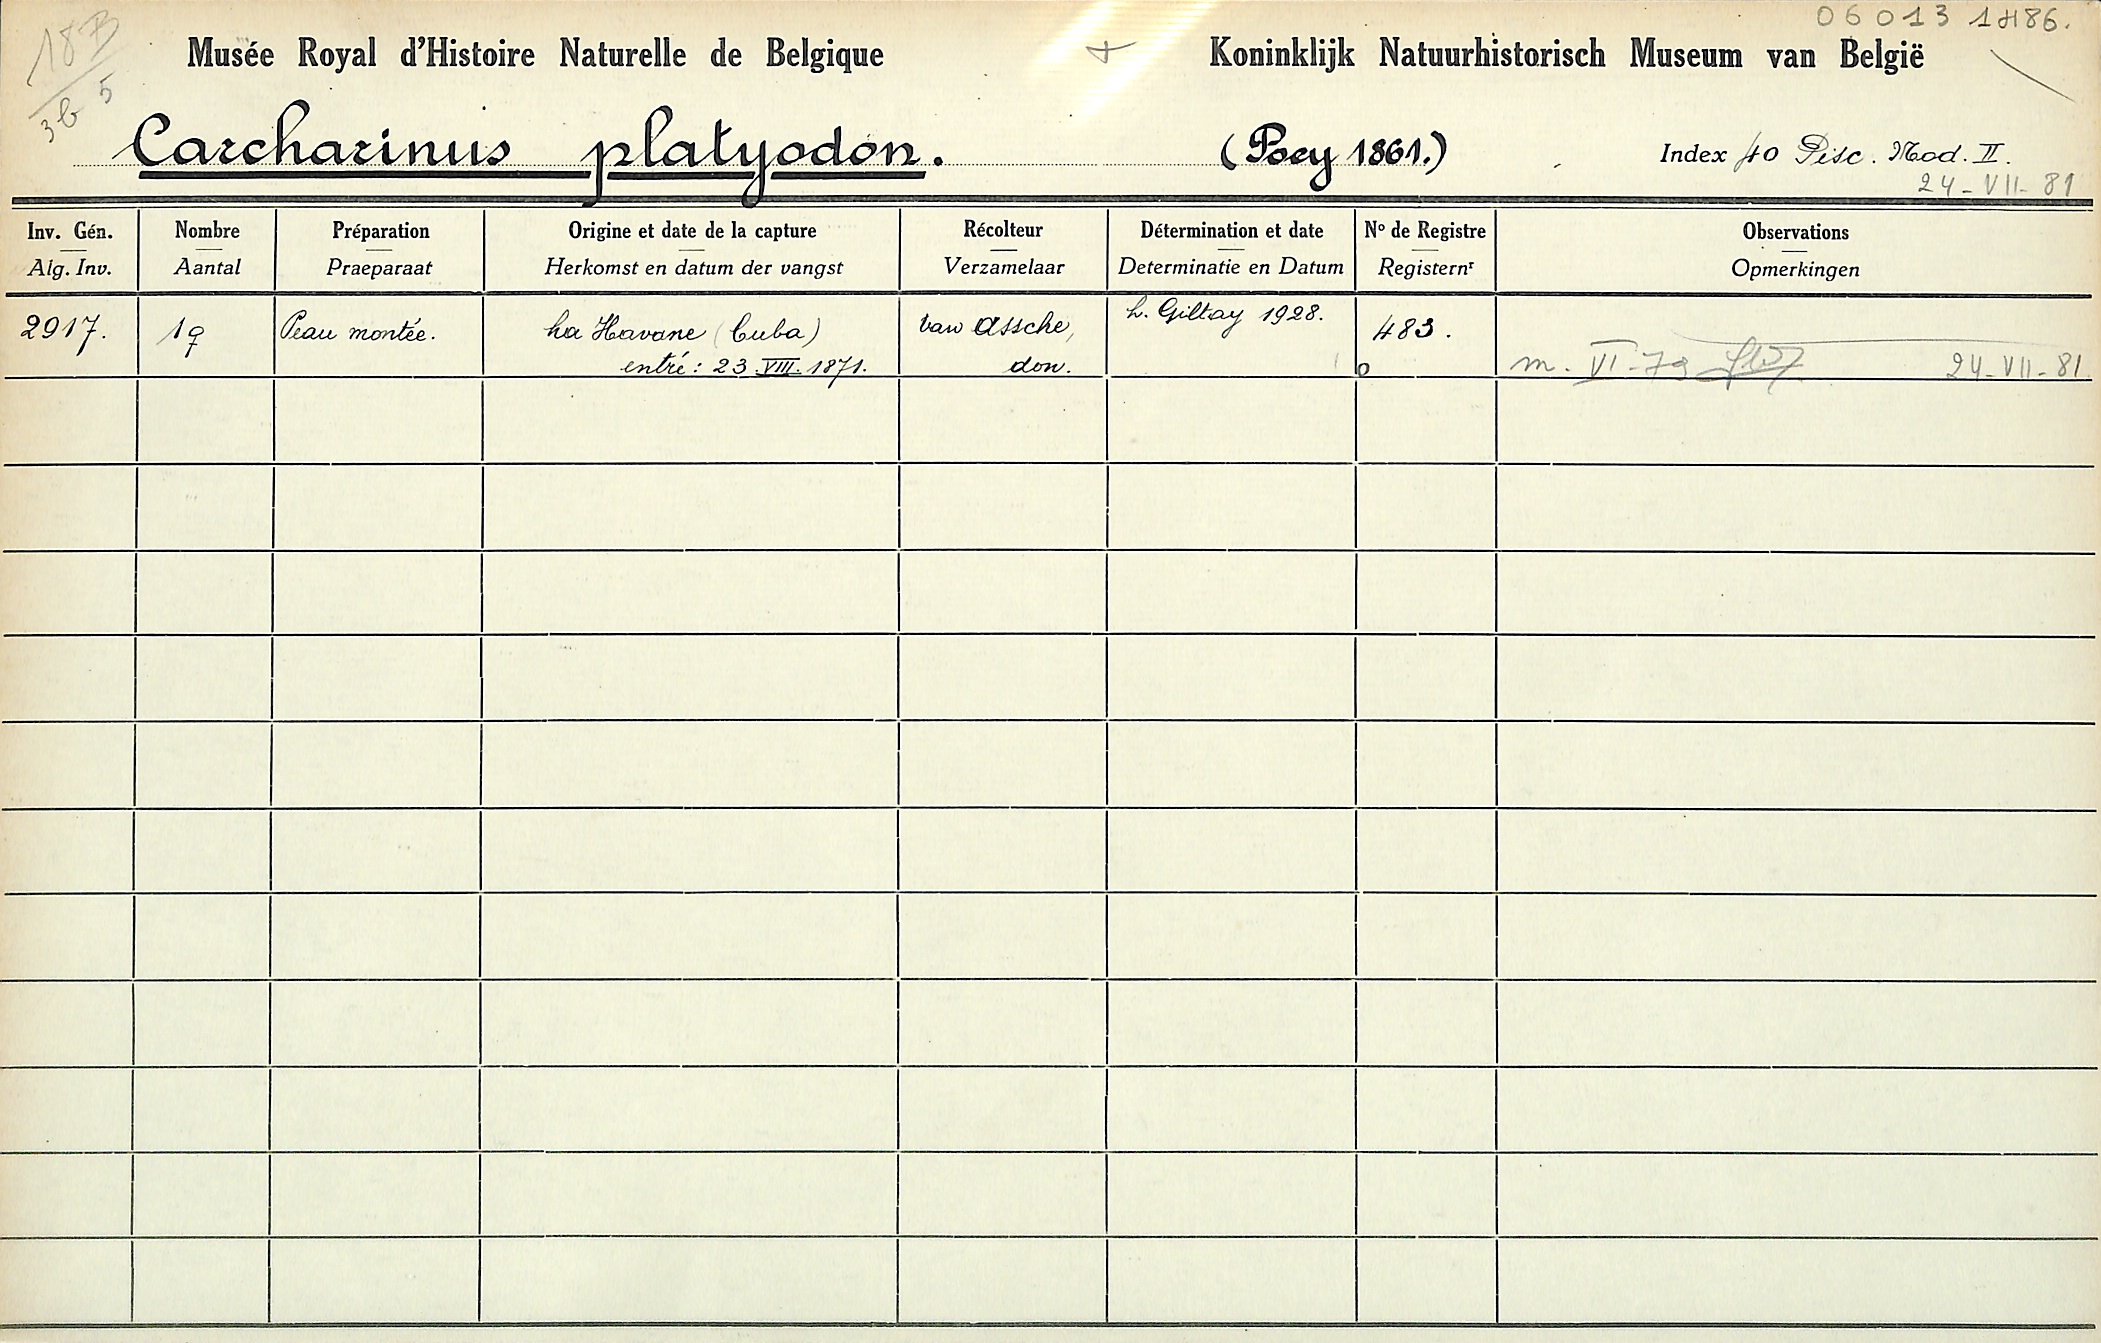 18B
3b 5
06013 1486.
Musée Royal d'Histoire Naturelle de Belgique
Koninklijk Natuurhistorisch Museum van België
Carcharinus platyodon. (Poey 1861.)
Index 40 Pisc. Mod. II.
24-VII-81
Inv. Gén. Nombre Préparation Origine et date de la capture Récolteur Détermination et date Nº de Registre Observations
Alg. Inv. Aantal Praeparaat Herkomst en datum der vangst Verzamelaar Determinatie en Datum Registernr Opmerkingen
2917. 1♀ Peau montée. La Havane (Cuba) van Assche, L. Giltay 1928. 483.
entré: 23.VIII.1871. don. m. VI-79 24-VII-81